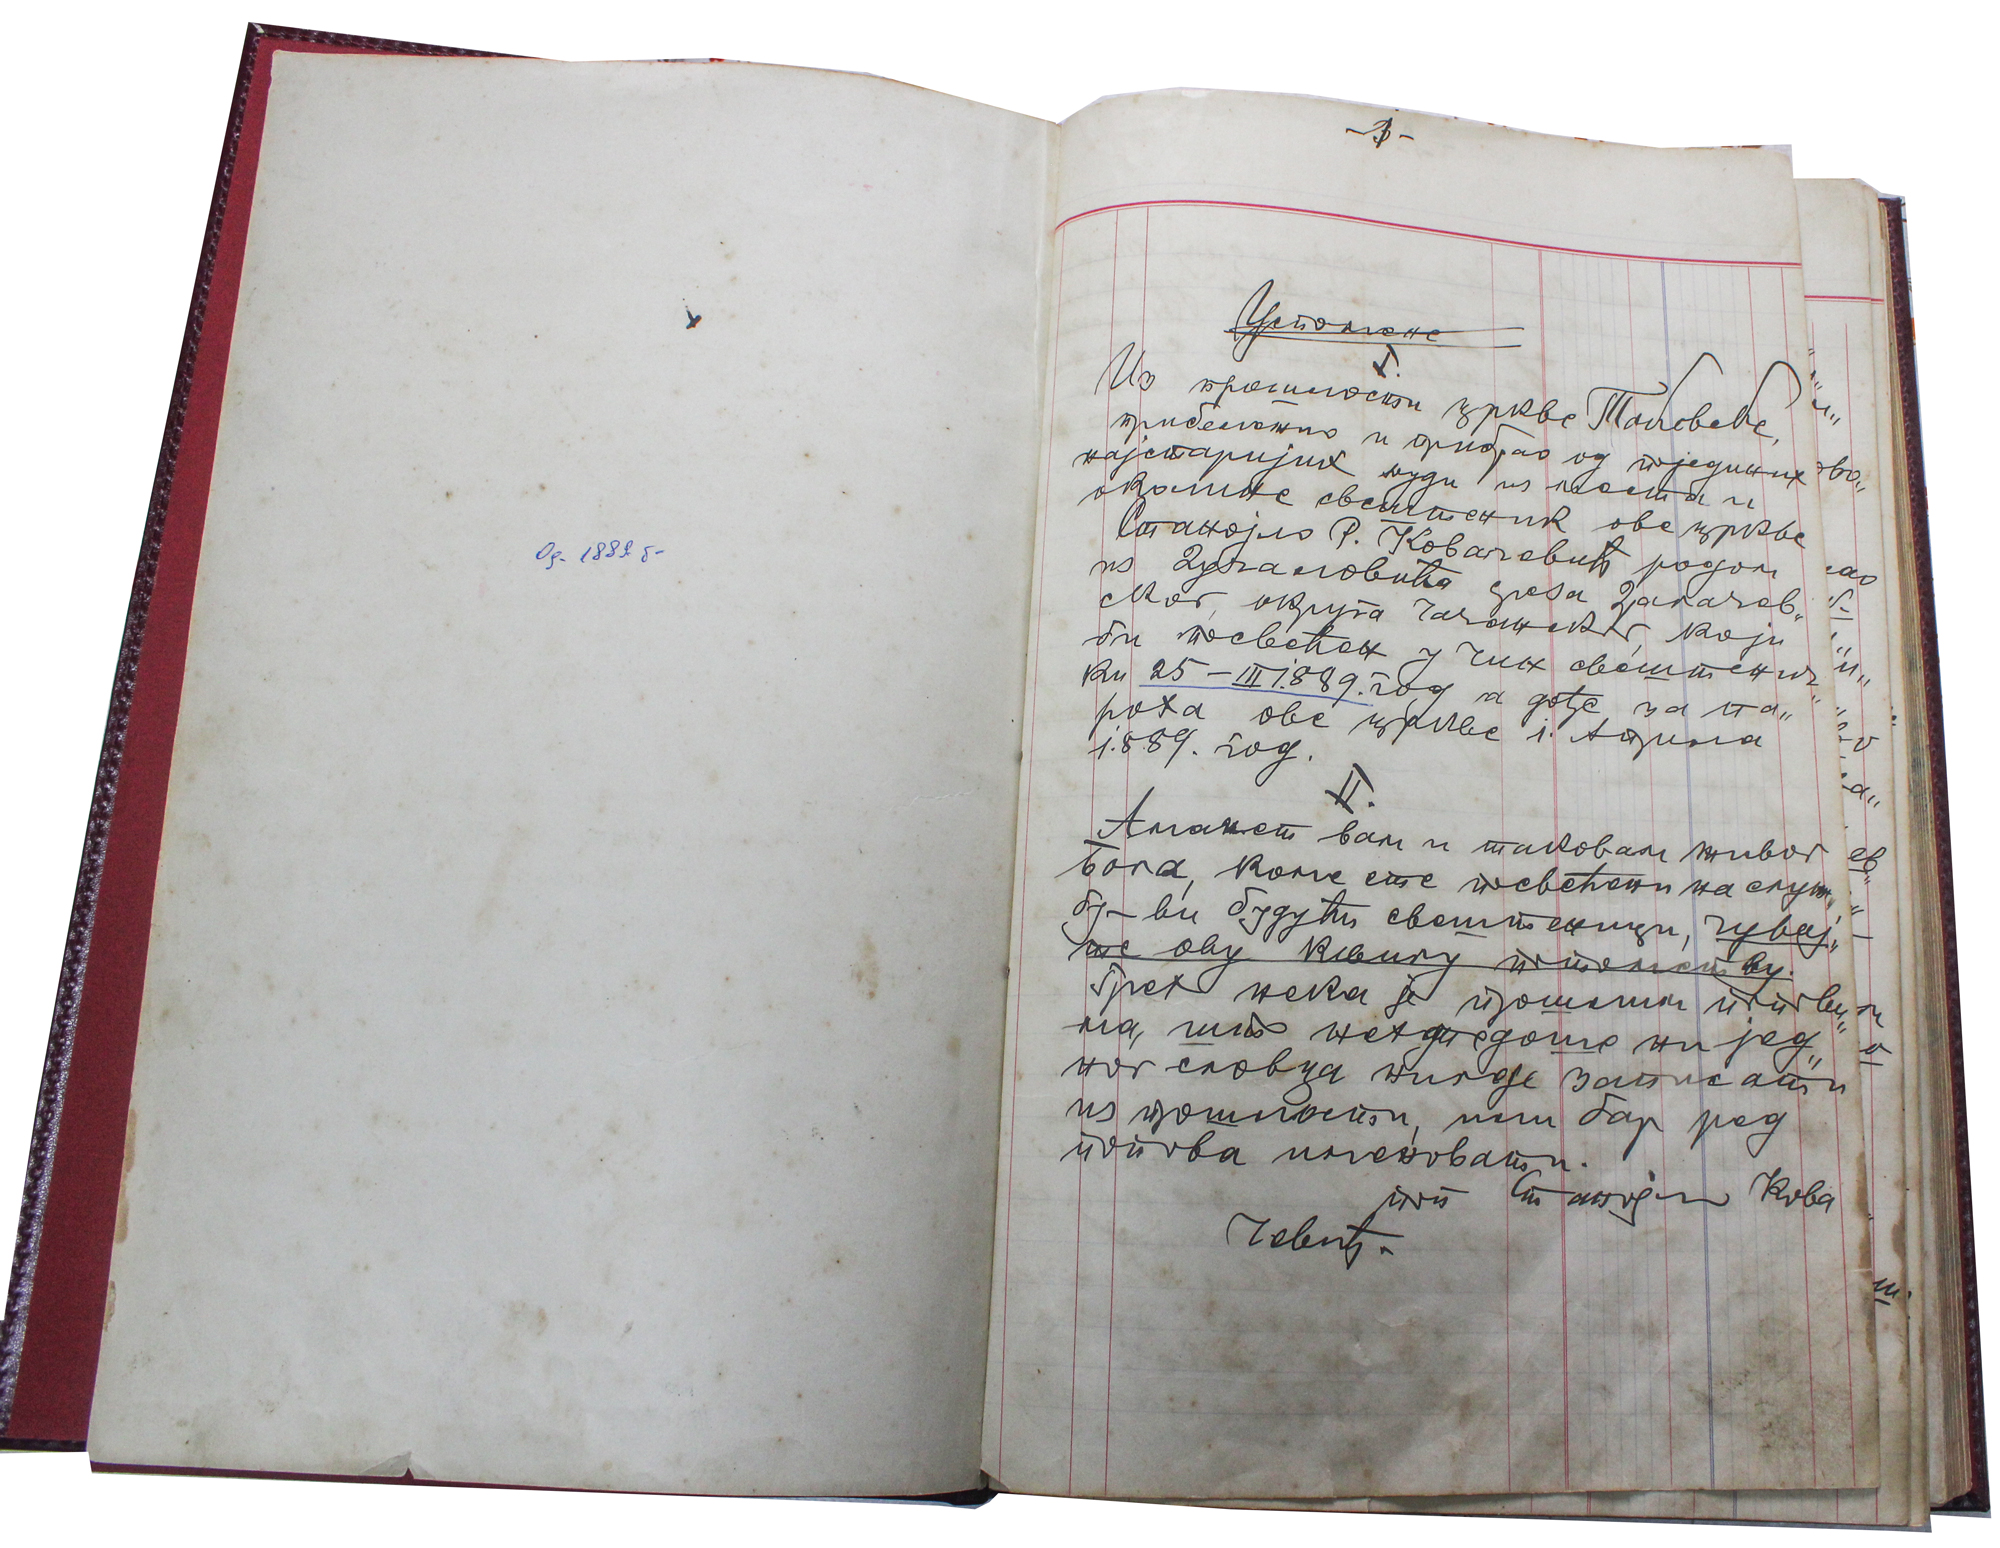 Од. 1889 г-
Успомене
I.
Из прошлости цркве
прибележио и прибрао од појединих
најстаријих људи из места и
околине свештеник ове цркве
Станојло Р. Ковачевић родом
из Гучаловића среза Драгачев„
ског, округа чачанског, који
би посвећен у чин свештенич„
ки 25-III 1889. год а дође за па„
роха ове цркве 1. Априла
1.889. год.
II.
Аманет вам и таковам живог
Бога, коме сте посвећени на служ„
бу- ви будући свештеници, чувај„
те ову књигу потомству.
Грех нека је прошлим попови„
ма, што не ни јед„
ног словца нигде записати
из прошлости, или бар ред
попова именовати.
поп Станојло Кова
чевић.